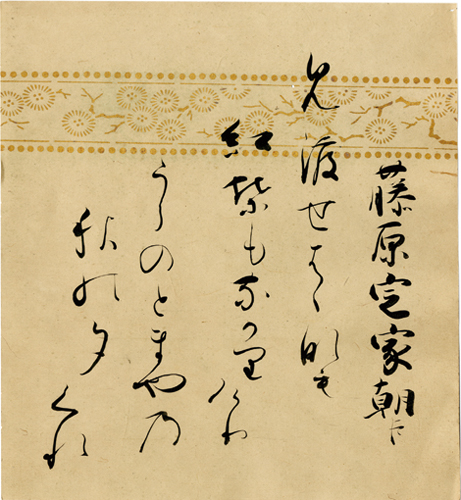 藤原定家朝臣
見渡せは花も
紅葉もなかりけり
うらのとまや乃
秋の夕くれ